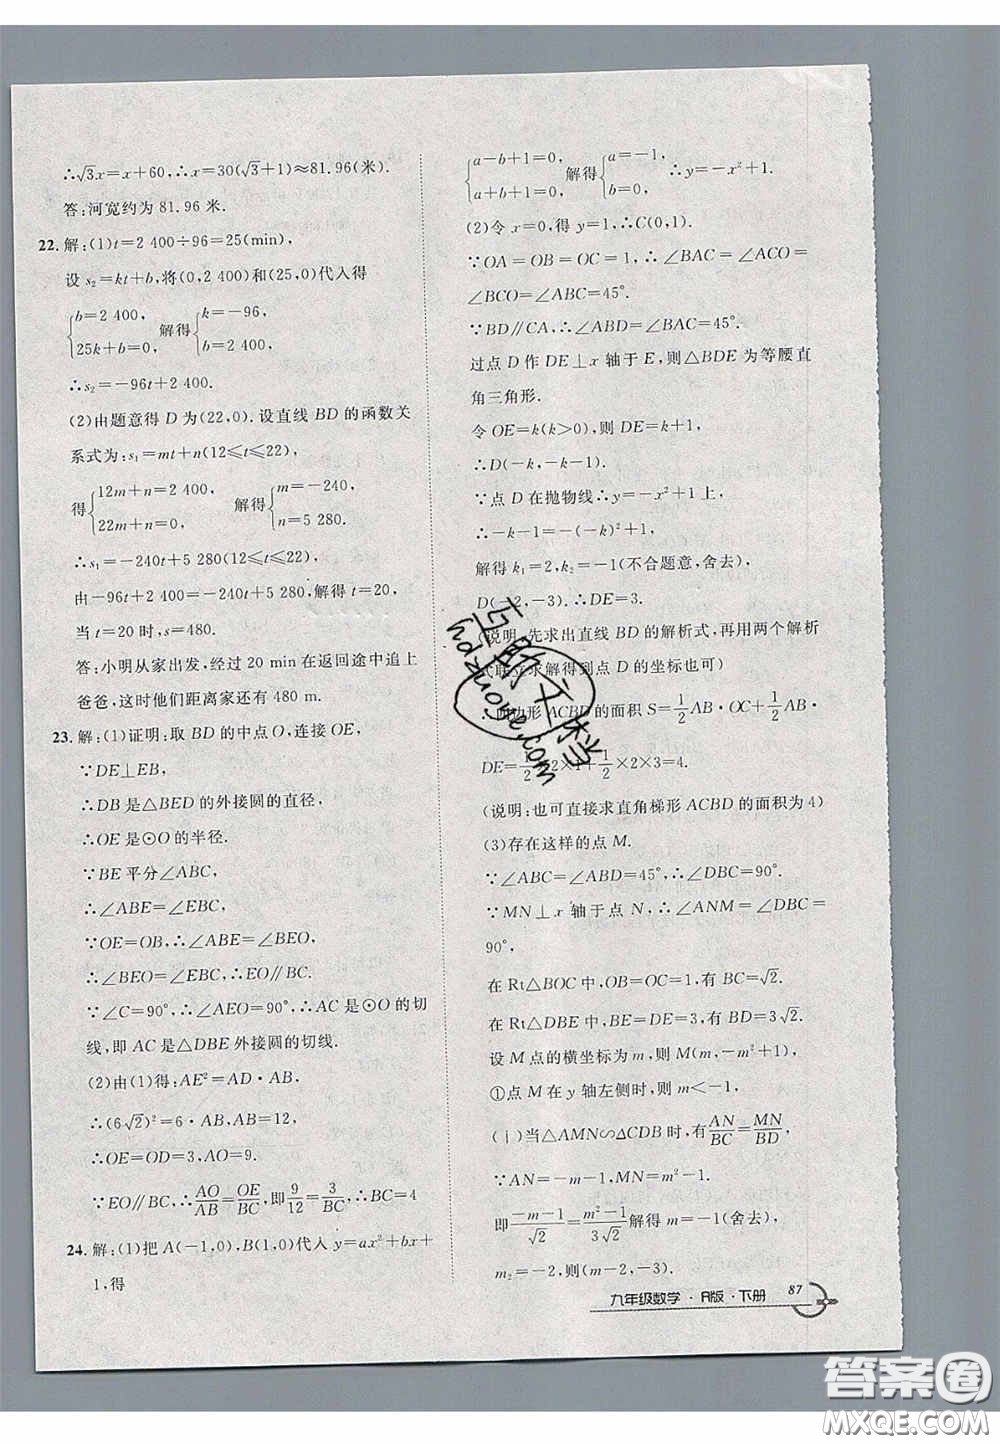 ∴√3x=x+60,∴x=30(√3+1)≈81.96(米).
答:河宽约为 81.96 米.
22. 解:(1)t=2 400÷96=25(min),
设 s₂=kt+b,将(0,2 400)和(25,0)代入得
{b=2 400, 25k+b=0, 解得{k=-96, b=2 400.
∴s₂=-96t+2 400.
(2)由题意得 D 为(22,0).设直线 BD 的函数关
系式为:s₁=mt+n(12≤t≤22),
得{12m+n=0, 22m+n=0, 解得{m=-240, n=5 280.
∴s₁=-240t+5 280(12≤t≤22),
由-96t+2 400=-240t+5 280,解得 t=20,
当 t=20 时,s=480.
答:小明从家出发,经过 20 min 在返回途中追上
爸爸,这时他们距离家还有 480 m.
23. 解:(1)证明:取 BD 的中点O,连接 OE,
∵DE⊥EB,
∴DB 是△BED 的外接圆的直径,
∴OE 是⊙O 的半径.
∵BE 平分∠ABC,
∴∠ABE=∠EBC,
∵OE=OB,∴∠ABE=∠BEO,
∴∠BEO=∠EBC,∴EO∥BC.
∵∠C=90°,∴∠AEO=90°,∴AC 是⊙O 的切
线,即 AC 是△DBE 外接圆的切线.
(2)由(1)得:AE²=AD·AB,
∴(6√2)²=6·AB,AB=12,
∴OE=OD=3,AO=9.
∵EO∥BC,∴AO/AB=OE/BC,即9/12=3/BC,∴BC=4
24. 解:(1)把 A(-1,0),B(1,0)代入 y=ax²+bx+
1,得
{a-b+1=0, a+b+1=0, 解得{a=-1, b=0. ∴y=-x²+1
(2)令 x=0,得 y=1,∴C(0,1)
∵OA=OB=OC=1,∴∠BAC=∠ACO=
∠BCO=∠ABC=45°.
∵BD∥CA,∴∠ABD=∠BAC=45°.
过点 D 作 DE⊥x 轴于 E,则△BDE 为等腰直
角三角形.
令 OE=k(k>0),则 DE=k+1,
∴D(-k,-k-1).
∵点 D 在抛物线∴y=-x²+1 上,
∴-k-1=-(-k)²+1,
解得 k₁=2,k₂=-1(不合题意,舍去),
D(-2,-3).∴DE=3.
(说明:先求出直线 BD 的解析式,再用两个解析
式联立求解得到点 D 的坐标也可)
∴四边形 ACBD 的面积 S=1/2AB·OC+1/2AB·
DE=1/2×2×1+1/2×2×3=4.
(说明:也可直接求直角梯形 ACBD 的面积为4)
(3)存在这样的点 M.
∵∠ABC=∠ABD=45°,∴∠DBC=90°.
∵MN⊥x 轴于点 N,∴∠ANM=∠DBC=
90°,
在 Rt△BOC 中,OB=OC=1,有 BC=√2.
在 Rt△DBE 中,BE=DE=3,有 BD=3√2.
设 M 点的横坐标为 m,则 M(m,-m²+1)
①点 M 在 y 轴左侧时,则 m<-1,
(ⅰ)当△AMN∽△CDB 时,有AN/BC=MN/BD,
∵AN=-m-1,MN=m²-1,
即(-m-1)/√2=(m²-1)/(3√2)解得 m=-1(舍去),
m₂=-2,则(-2,-3).
九年级数学·R版·下册 87
互助文档
hdzuoye.com
答案圈
MXQE.COM